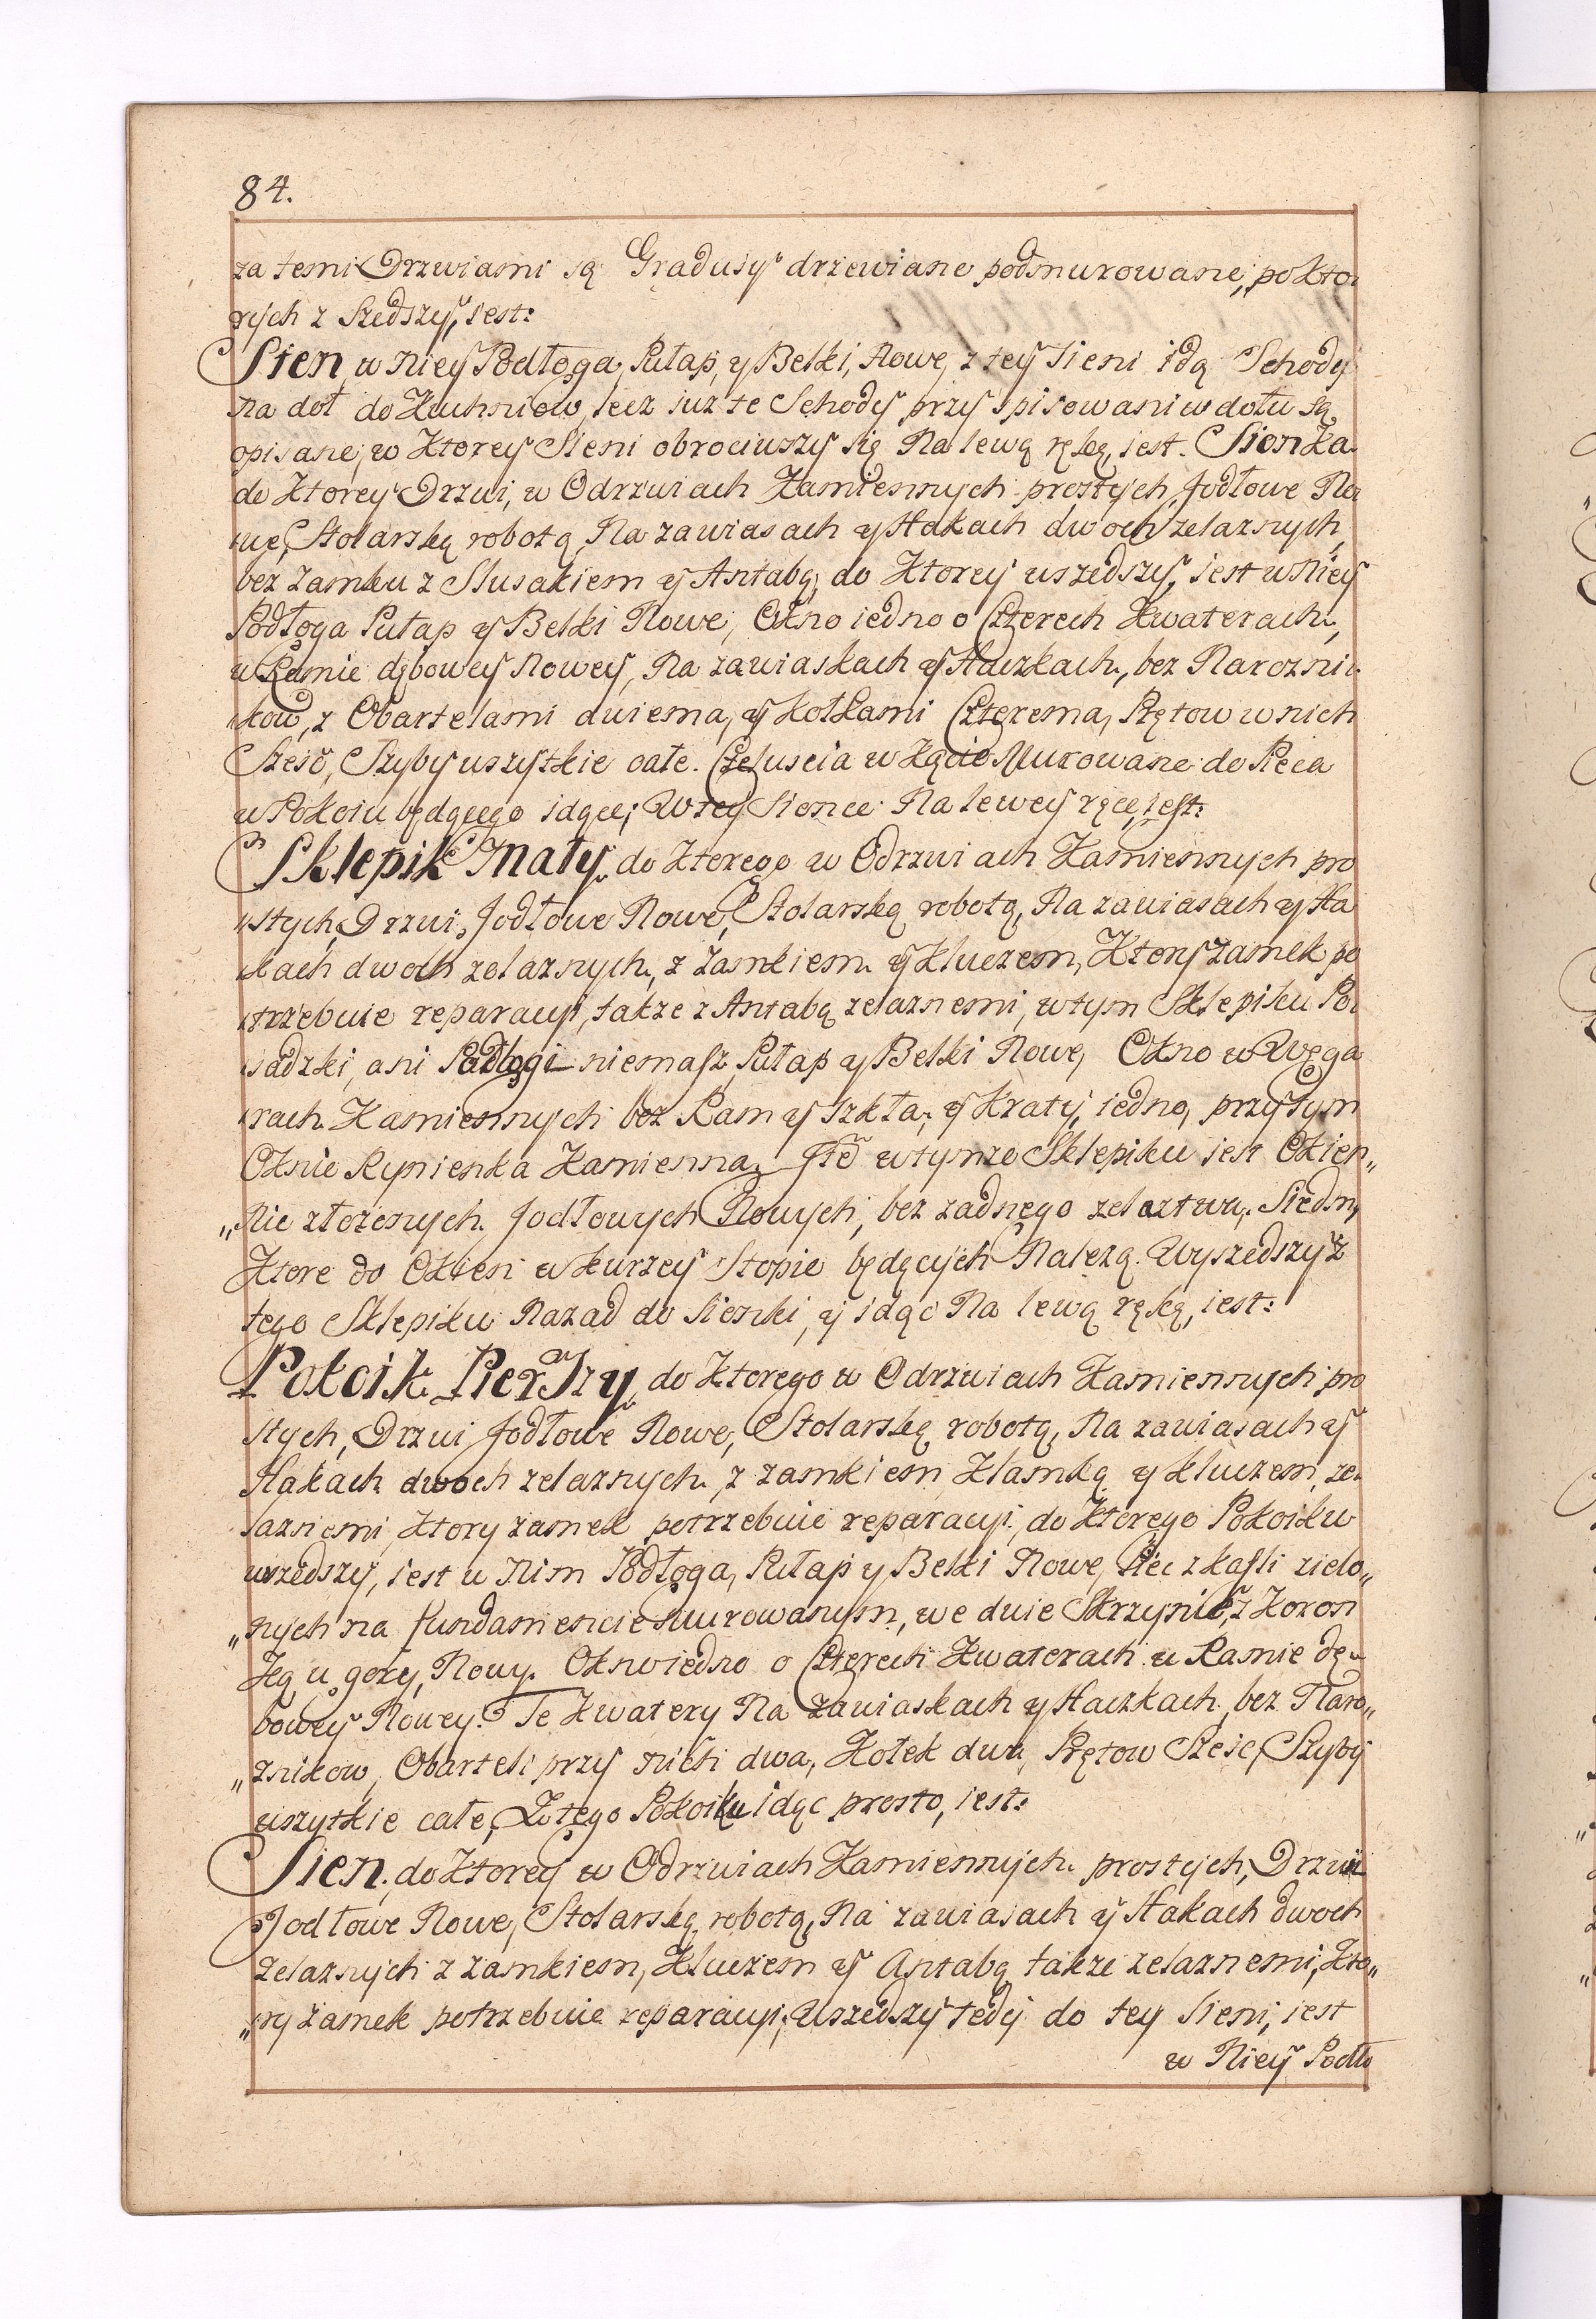 84.
za temi Drzwiami są Gradusy drzewiane podmurowane, po kto„
rych z szedszy, iest:
Sien, w niey Podłoga, Pułap, y Belki, Nowe, z tey Sieni idą Schody
na doł do Kuchniow, lecz iuż te Schody przy spisowaniu dołu są
opisane, w ktorey Sieni obrociwszy się Na lewą rękę, iest. Sionka
do ktorey Drzwi, w Odrzwiach Kamiennych prostych, Jodłowe No„
„we, Stolarską robotą, Na zawiasach y Hakach dwoch żelaznych,
bez Zamku z Slusakiem y Antabą, do ktorey wszedszy, iest w Niey
Podłoga Pułap y Belki Nowe, Okno iedno o Czterech Kwaterach,
w Ramie dębowey Nowey, Na zawiaskach y Haczkach, bez Narozni„
„kow, z Obartelami dwiema, y Kołkami Czterema, Prętow w nich
Sześć, Szyby wszystkie całe. Czeluscia w Kącie Murowane do Pieca
w Pokoiu będącego idące; W tey Sionce Na lewey ręce, iest:
Sklepik Mały, do ktorego w Odrzwiach Kamiennych pro
„stych, Drzwi, Jodłowe Nowe, Stolarską robotą, Na zawiasach y Ha
„kach dwoch zelaznych, z Zamkiem y kluczem, Ktory Zamek po
„trzebuie reparacyi, także z Antabą zelaznemi, w tym Sklepiku Po„
„sadzki, ani Podłogi niemasz, Pułap y Belki Nowe, Okno w Węga
„rach Kamiennych bez Ram y szkła, y Kraty, iedno, przy tym
Oknie Rynienka Kamienna, Ite w tymże Sklepiku iest Okien„
„Nic złożonych Jodłowych Nowych, bez żadnego zelaztwa, Siedm,
Ktore do Okien w kurzey Stopie będących Należą. Wyszedszy z
tego Sklepiku Nazad do sionki, y idąc Na lewą rękę, iest:
Pokoik Pierszy, do ktorego w Odrzwiach Kamiennych pro
stych, Drzwi Jodłowe Nowe, Stolarską robotą, Na zawiasach y
Hakach dwoch zelaznych, z zamkiem, Klamką y kluczem, ze„
laznemi, Ktory zamek potrzebuie reparacyi, do ktorego Pokoiku
wszedszy, iest w Nim Podłoga, Pułap y Belki Nowe, Piec z kafli zielo„
„nych na fundamencie murowanym, we dwie Skrzynie, z Koron
Ką u gory, Nowy. Okno iedno o Czterech Kwaterach w Ramie dę„
bowey Nowey. Te Kwatery Na zawiaskach y Haczkach, bez Naro„
„znikow, Obarteli przy Nich dwa, Kołek dwa, Prętow Sześć, Szyby
wszytkie całe, Z tego Pokoiku idąc prosto, iest:
Sien, do ktorey w Odrzwiach Kamiennych prostych, Drzwi
Jodłowe Nowe, Stolarską robotą, Na zawiasach y Hakach dwoch
Zelaznych z zamkiem, Kluczem y Antabą także zelaznemi, Kto„
„ry zamek potrzebuie reparacyi, Wszedszy tedy do tey Sieni, iest
w Niey Podło